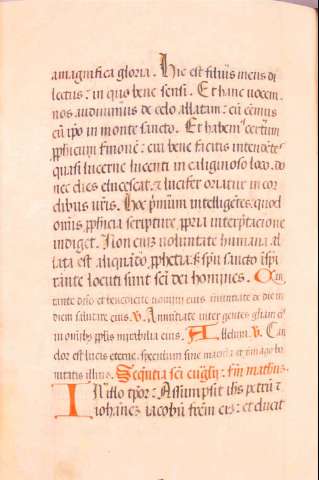 a magnifica gloria. Hic est filius meus di
lectus: in quo bene sensi. Et hanc vocem.
nos audivimus de celo allatam: cū eēmus
cū ip̄o in monte sancto. Et habem⁹ certiorē
ꝓpheticum s̄monē: cui bene facitis intendētes
quasi lucerne lucenti in caliginoso loco. do
nec dies elucescat, ⁊ lucifer oriatur in cor
dibus vr̄is. Hoc p̄mum intelligētes. quod
om̄is ꝓphetia scripture, ꝓpria interp̄tacione
indiget. Non enī voluntate humana al
lata est aliquādo ꝓphetia: s; sp̄u sancto īspi
rante locuti sunt sc̄i dei homines. Can
tate dn̄o et benedicite nomini eius: nunciate de die in
diem salutare eius. v. Annūciate inter gentes gloriā ei⁹
in omnibȝ ppl̄is mirabilia eius. Alleluia. v. Can
dor est lucis eterne. speculum sine macula: et ymago bo
nitatis illius. Sequētia sc̄i eūglij: sm̄ mattheū.
In illo tp̄or: Assumpsit ih̄s petrū ⁊
iohanēȝ iacobū frēm ei⁹: et ducit